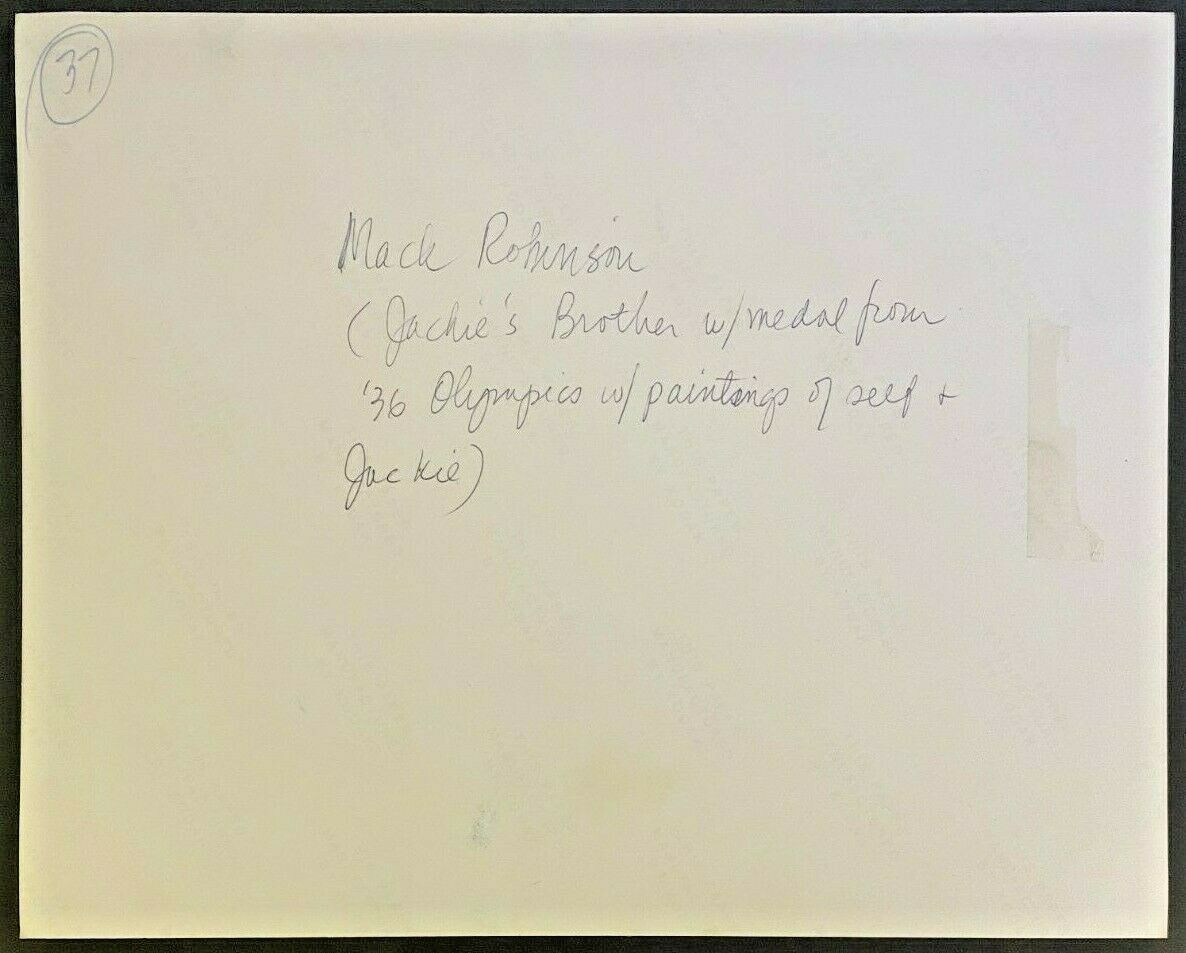 37
Mack Robinson
(Jackie's Brother w/medal from
'36 Olympics w/ paintings of self +
Jackie)